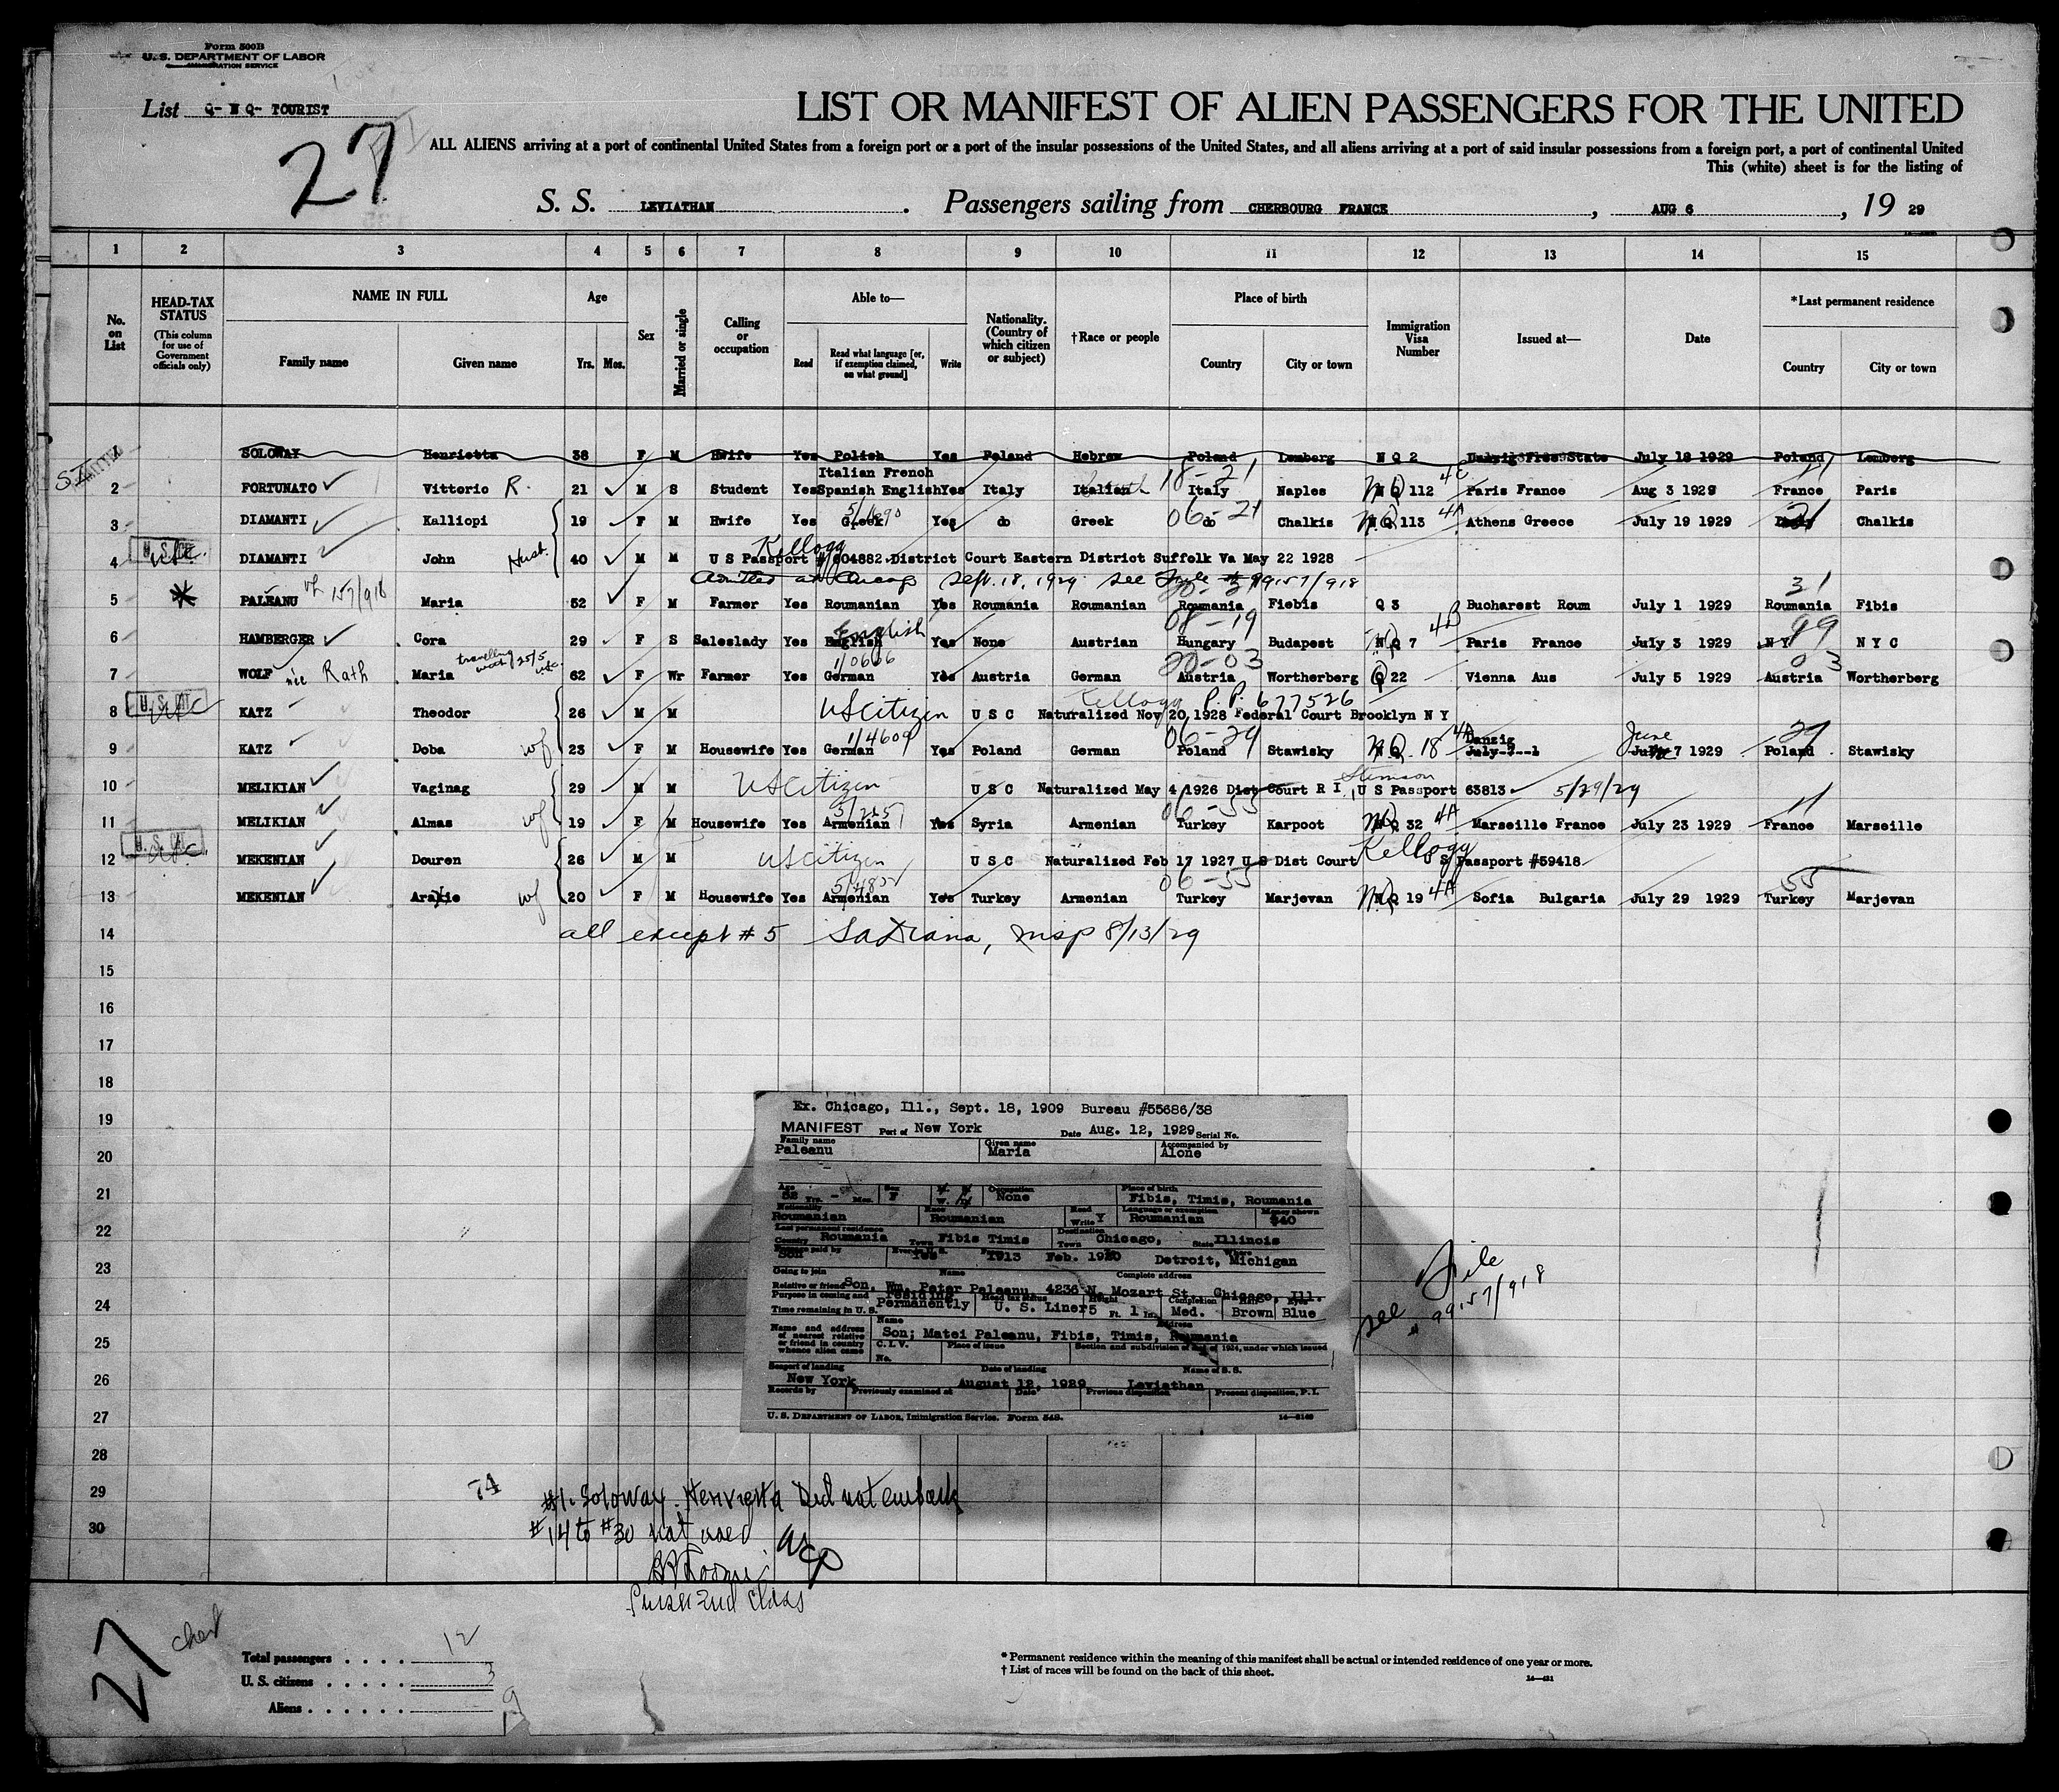 Form 500B
U. S. DEPARTMENT OF LABOR
IMMIGRATION SERVICE
List Q- N Q- TOURIST
27
LIST OR MANIFEST OF ALIEN PASSENGERS FOR THE UNITED
ALL ALIENS arriving at a port of continental United States from a foreign port or a port of the insular possessions of the United States, and all aliens arriving at a port of said insular possessions from a foreign port, a port of continental United
This (white) sheet is for the listing of
S. S. LEVIATHAN . Passengers sailing from CHERBOURG FRANCE , AUG 6 , 19 29
1 2 3 4 5 6 7 8 9 10 11 12 13 14 15
No. on List
HEAD-TAX STATUS (This column for use of Government officials only)
NAME IN FULL
Family name Given name
Age
Yrs. Mos.
Sex
Married or single
Calling or occupation
Able to—
Read Read what language [or, if exemption claimed, on what ground] Write
Nationality. (Country of which citizen or subject)
†Race or people
Place of birth
Country City or town
Immigration Visa Number
Issued at—
Date
*Last permanent residence
Country City or town
1 SOLOWAY Henrietta 38 F M Hwife Yes Polish Yes Poland Hebrew Poland Lemberg N Q 2 Danzig Free State July 18 1929 Poland Lemberg
Italian French 18-21 4C 11
2 FORTUNATO Vittorio R. 21 M S Student Yes Spanish English Yes Italy Italian Italy Naples N Q 112 Paris France Aug 3 1929 France Paris
06-21 4A 21
3 DIAMANTI Kalliopi 19 F M Hwife Yes Greek Yes do Greek do Chalkis N Q 113 Athens Greece July 19 1929 Chalkis
Kellogg
4 DIAMANTI John Husb. 40 M M U S Passport # 604882 District Court Eastern District Suffolk Va May 22 1928
Admitted at Chicago Sept. 18, 1929 see File # 99157/918
5 PALEANU Maria 52 F M Farmer Yes Roumanian Yes Roumania Roumanian Roumania Fiebis Q 3 Bucharest Roum July 1 1929 Roumania Fibis
31
English 08-19 4B 99
6 HAMBERGER Cora 29 F S Saleslady Yes English Yes None Austrian Hungary Budapest N Q 7 Paris France July 3 1929 N Y N Y C
1/0606 20-03 03
7 WOLF née Rath Maria 62 F Wr Farmer Yes German Yes Austria German Austria Wortherberg Q 22 Vienna Aus July 5 1929 Austria Wortherberg
Kellogg P.P. 677526
8 KATZ Theodor 26 M M US citizen U S C Naturalized Nov 20 1928 Federal Court Brooklyn N Y
1/4609 06-29 4A Danzig June 29
9 KATZ Doba wf 23 F M Housewife Yes German Yes Poland German Poland Stawisky N Q 18 July 3--1 7 1929 Poland Stawisky
Stimson
10 MELIKIAN Vaginag 29 M M US citizen U S C Naturalized May 4 1926 Dist Court R I U S Passport 63813 5/29/29
06-55 4A 11
11 MELIKIAN Almas wf 19 F M Housewife Yes Armenian Yes Syria Armenian Turkey Karpoot N Q 32 Marseille France July 23 1929 France Marseille
Kellogg
12 MEKENIAN Douren 26 M M US citizen U S C Naturalized Feb 17 1927 U S Dist Court U S Passport #59418
06-55 4A 55
13 MEKENIAN Araxie wf 20 F M Housewife Yes Armenian Yes Turkey Armenian Turkey Marjevan N Q 19 Sofia Bulgaria July 29 1929 Turkey Marjevan
14 all except # 5 8/13/29
15
16
17
18
19
20
21
22
23
24
25
26
27
28
29
30
Ex. Chicago, Ill., Sept. 18, 1909 Bureau #55686/38
MANIFEST Port of New York Date Aug. 12, 1929 Serial No.
Family name Given name Accompanied by
Paleanu Maria Alone
Age Sex Occupation Place of birth
52 Yrs. - Mos. F None Fibis, Timis, Roumania
Nationality Race Read Language or exemption Money shown
Roumanian Roumanian Write Y Roumanian $40
Last permanent residence Destination
Country Roumania Town Fibis Timis Town Chicago, State Illinois
Son Yes 1913 Feb. 1920 Detroit, Michigan
Going to join Name Complete address
Relative or friend Son, Wm. Peter Paleanu 4236 N. Mozart St., Chicago, Ill.
Purpose in coming and residing Head tax status Height Complexion Hair Eyes
Time remaining in U. S. Permanently U. S. Liner 5 Ft. 1 In. Med. Brown Blue
Name and address of nearest relative or friend in country whence alien came
Name Address
Son; Matei Paleanu, Fibis, Timis, Roumania
C.I.V. No. Place of issue Section and subdivision of Act of 1924, under which issued
Seaport of landing Date of landing Name of S. S.
New York August 12, 1929 Leviathan
Records by Previously examined at Date Previous disposition Present disposition, P. I.
U. S. DEPARTMENT OF LABOR, Immigration Service. Form 548.
see File
# 99157/918
74
#1. Soloway. Henrietta Did not embark
#14 to #30 not used
Purser 2nd class
27 cherb
Total passengers . . . . 12
U. S. citizens . . . . . 3
Aliens . . . . . . 9
* Permanent residence within the meaning of this manifest shall be actual or intended residence of one year or more.
† List of races will be found on the back of this sheet.